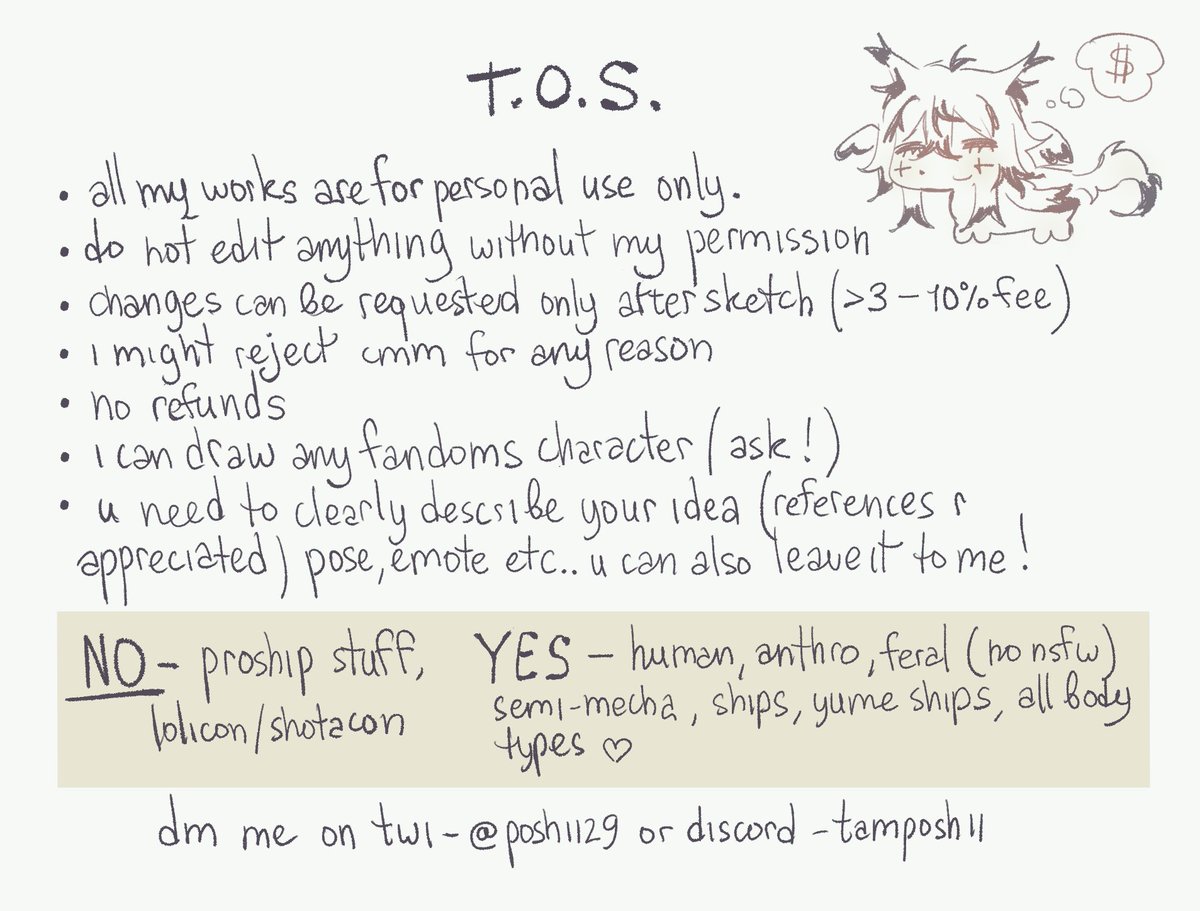 T.O.S.
$
• all my works are for personal use only.
• do not edit anything without my permission
• changes can be requested only after sketch (>3 – 10% fee)
• i might reject cmm for any reason
• no refunds
• i can draw any fandoms character (ask!)
• u need to clearly describe your idea (references r
appreciated) pose, emote etc.. u can also leave it to me!
NO – proship stuff,
lolicon/shotacon
YES – human, anthro, feral (no nsfw)
semi-mecha, ships, yume ships, all body
types ♡
dm me on twi - @poshii29 or discord - tamposhii